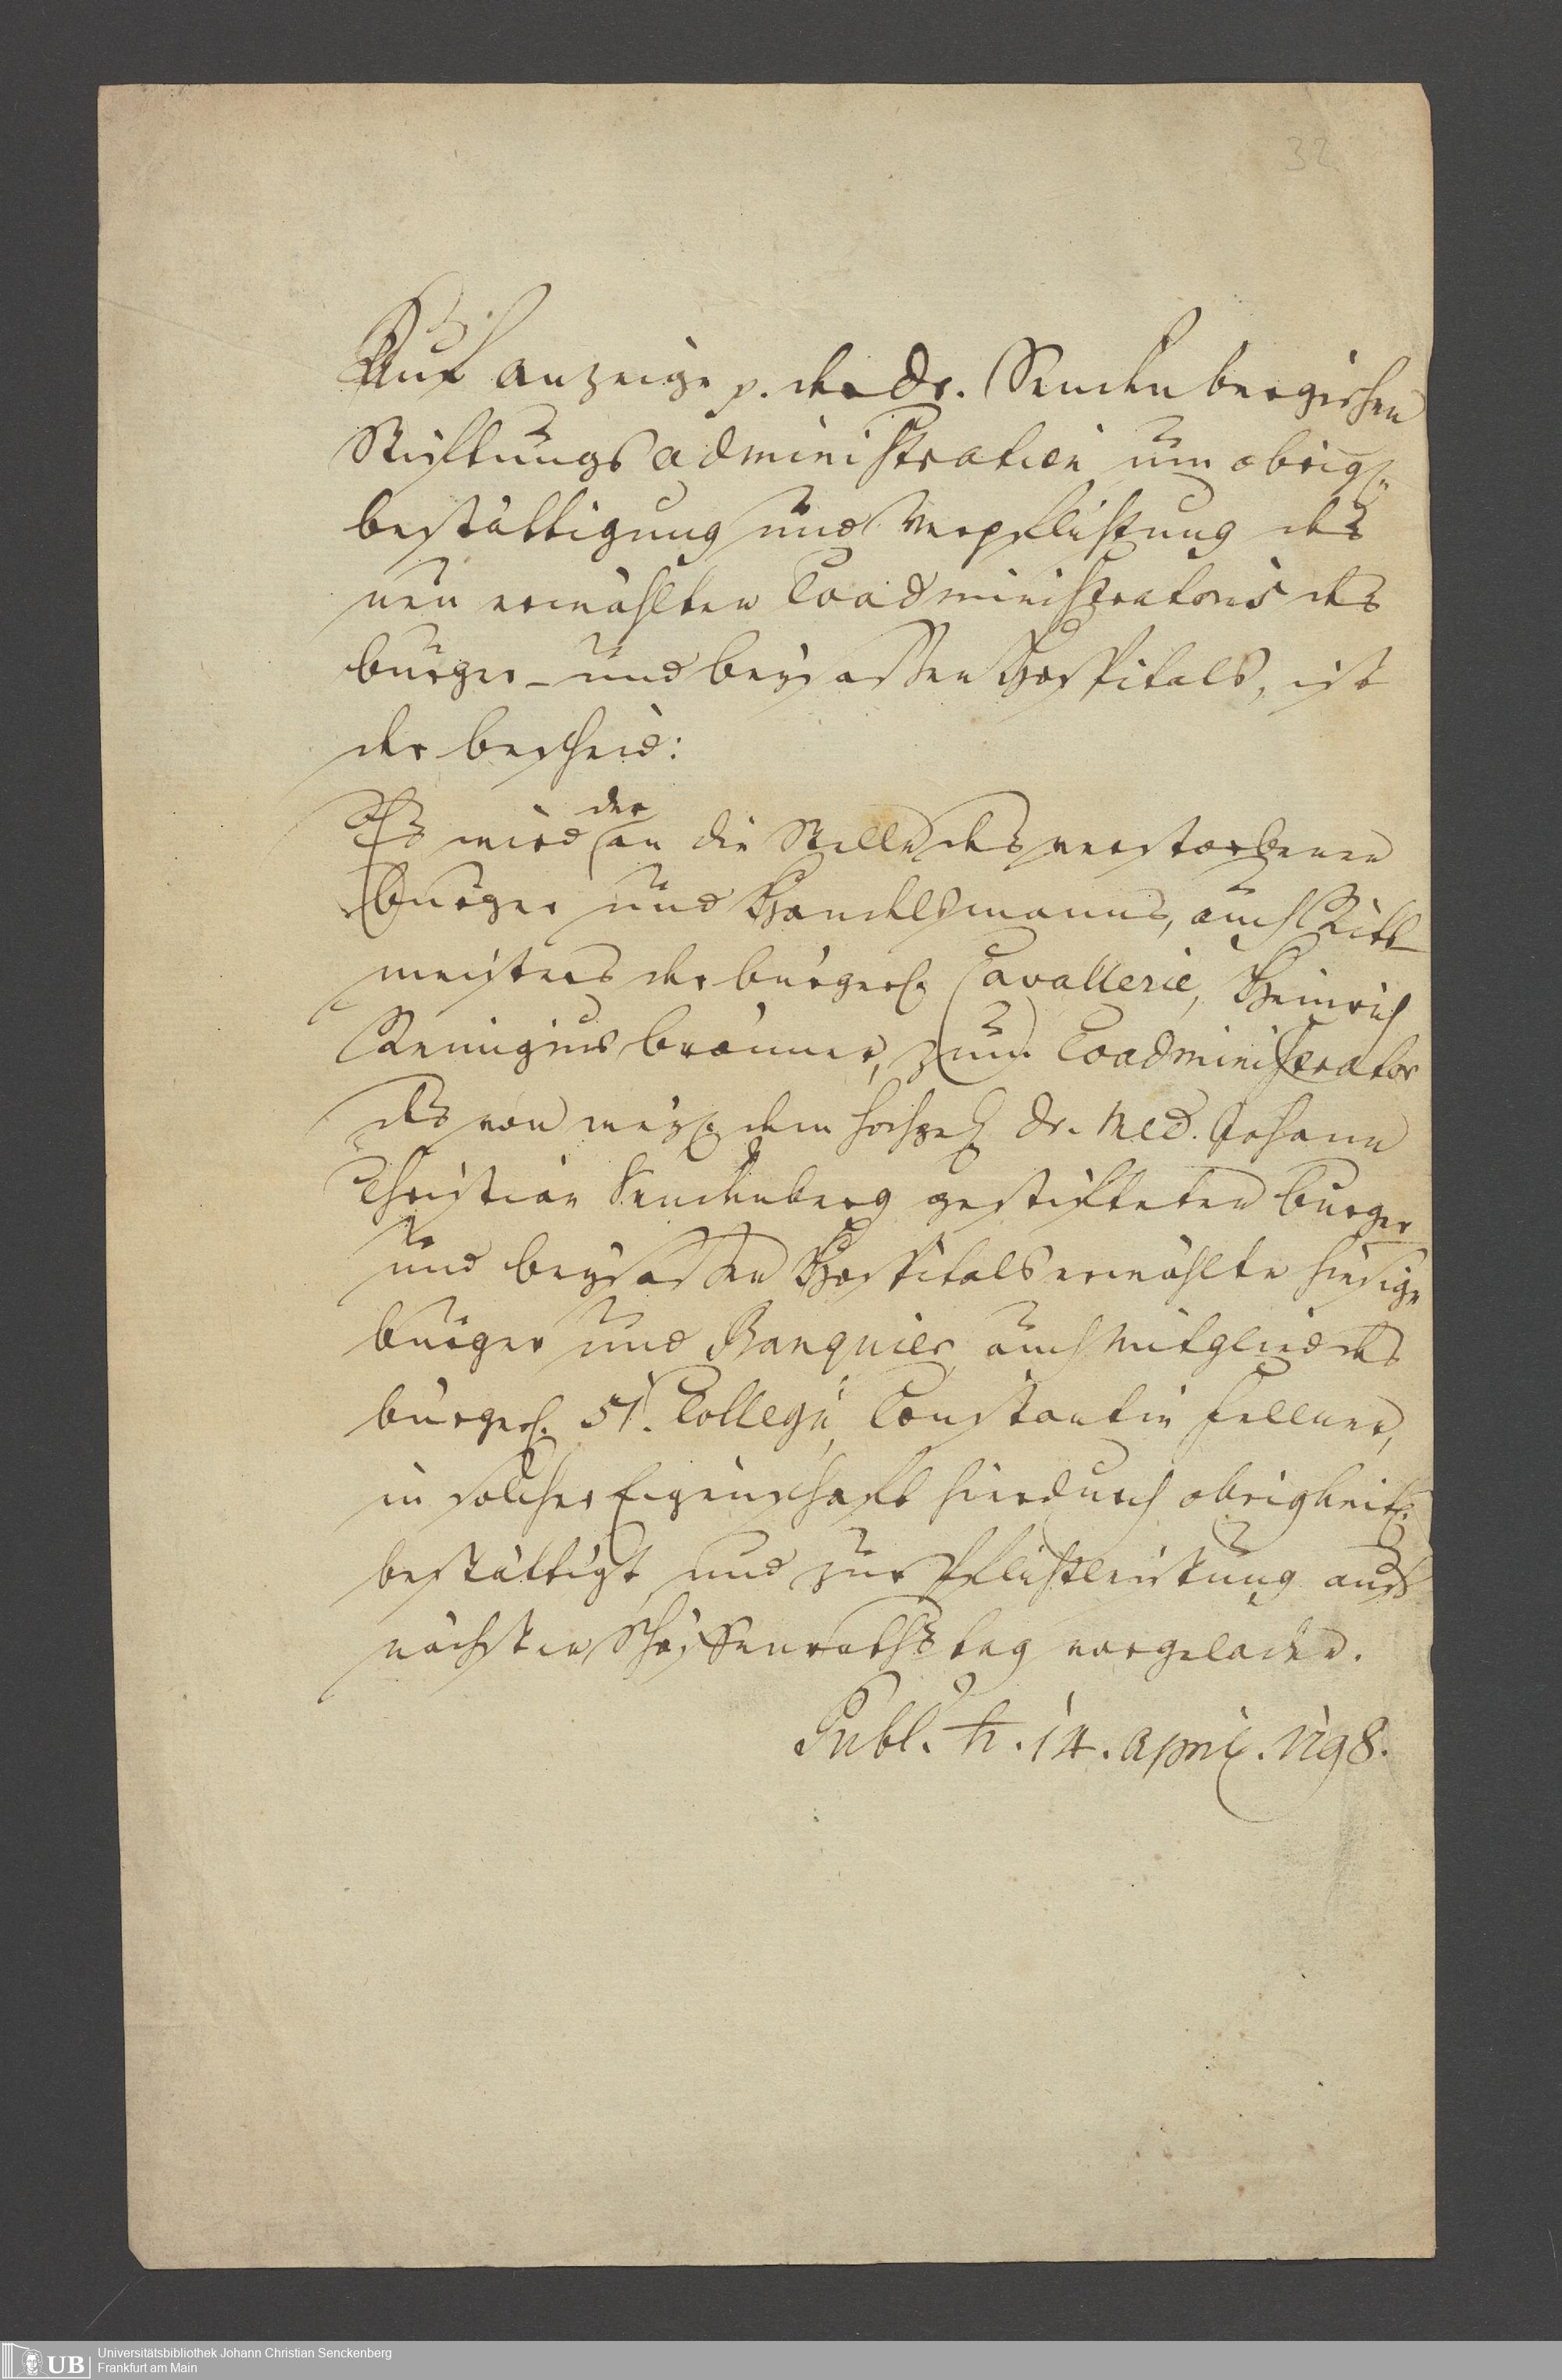 32
Auf Anzeige p. der Dr. Senckenbergischen
Stiftungsadministration um obrigk.
bestättigung und Verpflichtung des
neu erwählten Coadministratoris des
bürger- und beysassen Hospitals, ist
der bescheid:
Es wird der an die Stelle des verstorbenen
bürger und Handelsmanns, auch Ritt
meisters der bürgerl. Cavallerie, Heinrich
Remigius brönner, zum Coadministrator
des von weyl. dem hochgel. Dr. Med. Johann
Christian Senckenberg gestifteten bürger
und beysassen Hospitals erwählte hiesige
bürger und Banquier auch Mitglied des
bürgerl. 51. Collegii, Constantin Fellner,
in solcher Eigenschaft hierdurch obrigkeitl.
bestättigt, und zur Pflichtleistung aufs
nächsten Schöffenrathstag vorgeladen.
Publ. ♄. 14. April. 1798.
UB
Universitätsbibliothek Johann Christian Senckenberg
Frankfurt am Main